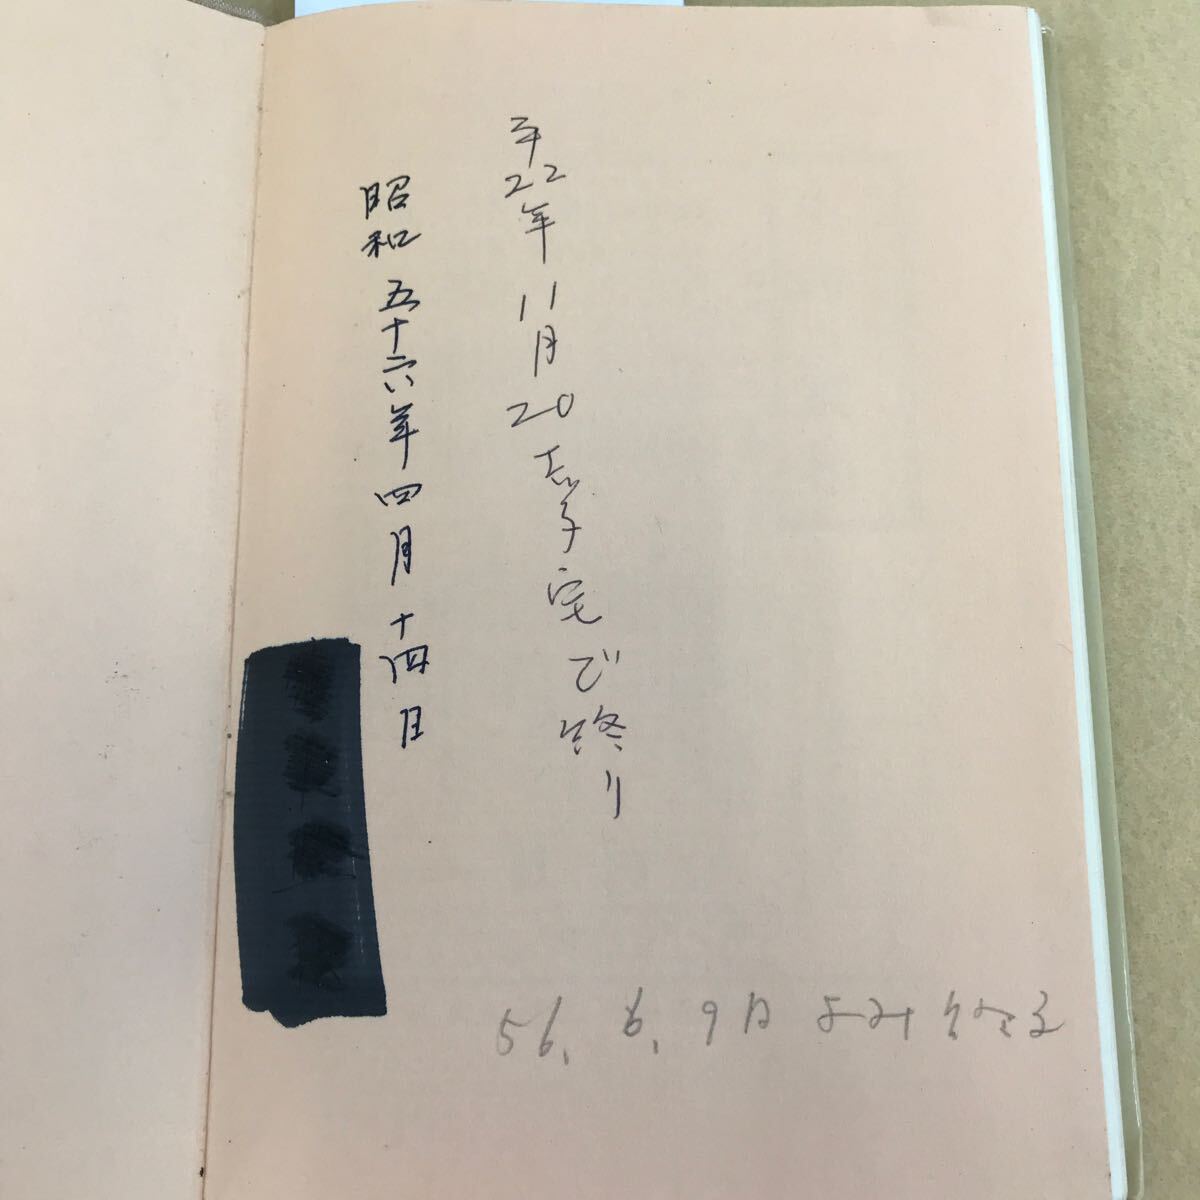 平22年11月20志子宅で終り
昭和五十六年四月十四日
56.6.9日よみ終る